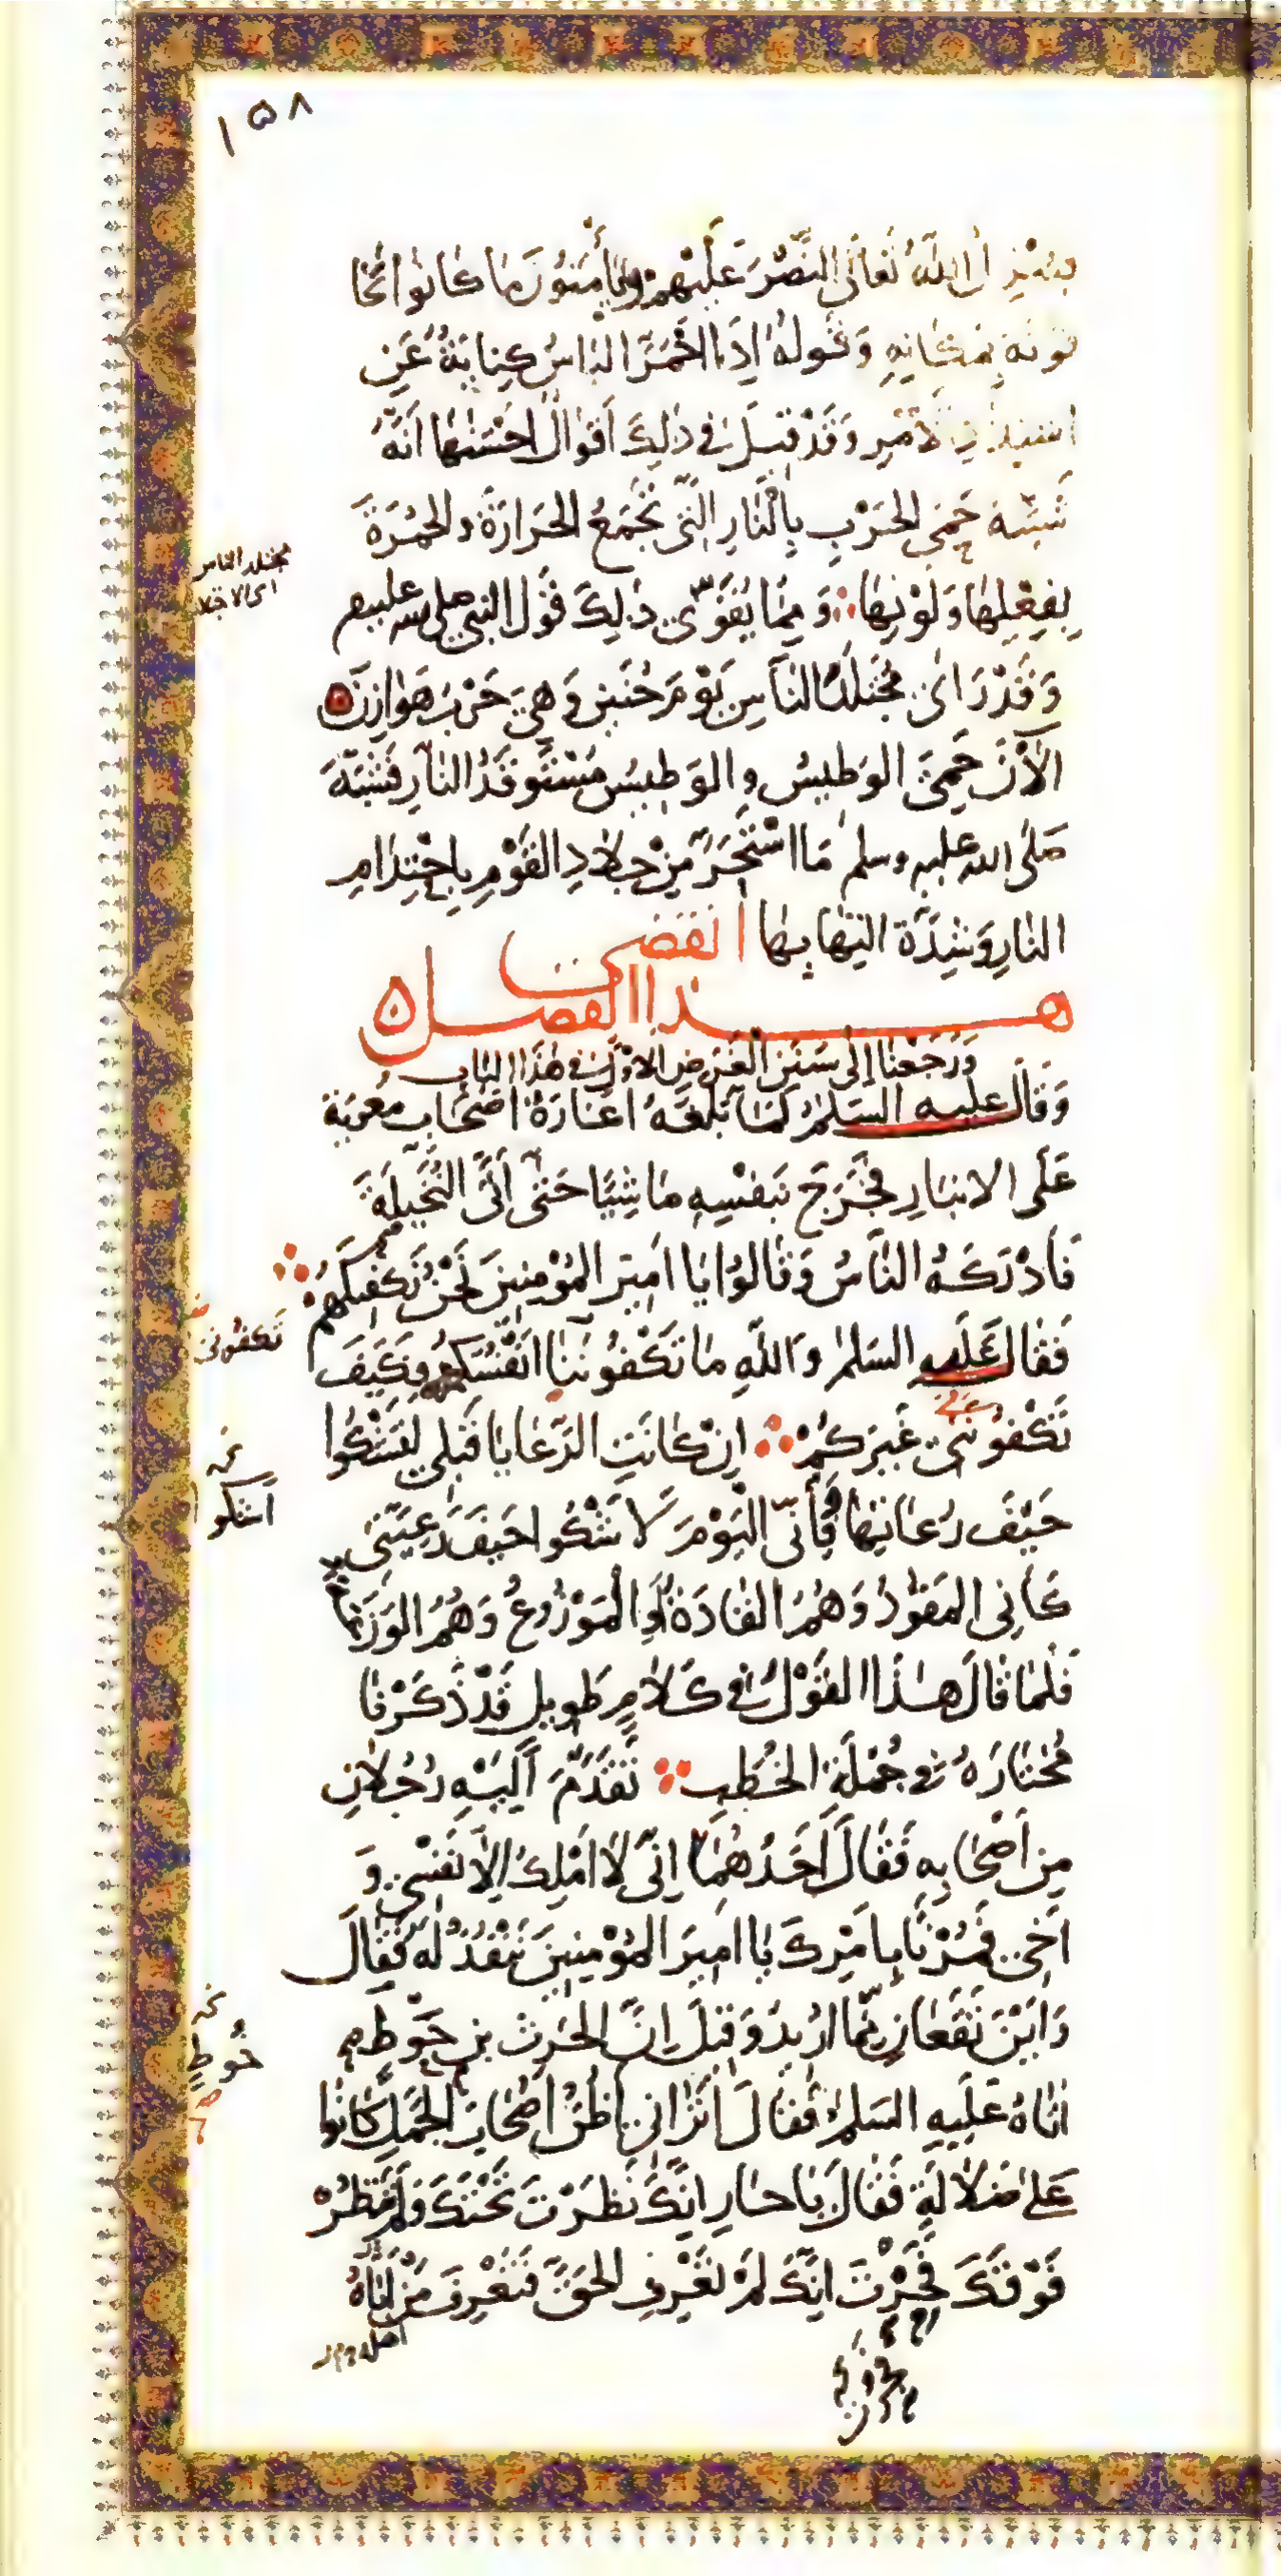 ١٥٨
الله تعالى النَّصْرَ عَلَيْهِمْ وَيَأْمَنُونَ مَا كَانُوا يَخَا
فونه بِمَكَانِهِ وَقَولُهُ إِذَا احْمَرَّ البَاسُ كِنايَةٌ عَنِ
الأَمْرِ وَقَدْ قيلَ في ذٰلِكَ أَقوالٌ أَحْسَنُها أَنَّهُ
شَبَّهَ حَمْيَ الحَرْبِ بِالنَّارِ الَّتي تَجْمَعُ الحَرَارَةَ والحُمْرَةَ
بِفِعْلِهَا وَلَوْنِهَا وَمِمَّا يُقَوِّي ذٰلِكَ قَولُ النبي صلى الله عليه
مجتلد الناس
وَقَدْ رَاى مُجْتَلَدَ النَّاسِ يَوْمَ حُنَينٍ وَهِيَ حَرْبُ هَوَازِنَ
الآنَ حَمِيَ الوَطِيسُ والوَطِيسُ مُسْتَوقَدُ النارِ فَشَبَّهَ
صلى الله عليه وسلم مَا اسْتَحَرَّ مِنْ جِلَادِ القَوْمِ بِاحْتِدَامِ
النارِ وَشِدَّةِ التِهَابِهَا انقضى
هذا الفصل
وَرَجَعْنا إِلى سَنَنِ الغَرَضِ الأوّل في هذا الباب
وَقَالَ عليه السَلم لَمّا بَلَغَهُ اغَارَةُ اصْحَابِ مُعويَة
عَلَى الانبَارِ فَخَرَجَ بنَفْسِهِ مَاشِيًا حَتّى أَتَى النُّخَيلَةَ
فَأَدْرَكَهُ النَّاسُ وَقَالُوا يَا امِيرَ المُؤمِنِينَ نَحْنُ نَكفِيكَهُمْ
تكفونى
فَقَالَ عَلَيهِ السَلم وَاللهِ مَا تَكْفُونَنِي انْفُسَكُم فَكَيفَ
تَكْفُونَنِي غَيرَكُمْ إِنْ كَانَتِ الرَّعَايَا قَبْلِي لَتَشْكُوا
اشكو
حَيْفَ رُعَاتِهَا فَإِنّي اليَوْمَ لَاشْكُوا حَيفَ رَعِيَّتِي
كَانِي المَقُودُ وَهُمُ القَادَةُ أوِ المَوْزُوعُ وَهُمُ الوَزَعَةُ
فَلَمَّا قَالَ هذا القَوْلَ في كَلَامٍ طَويلٍ قَدْ ذَكَرْنَا
مُخْتَارَهُ في جُمْلَةِ الخُطَبِ تَقَدَّمَ إِلَيْهِ رَجُلَانِ
مِن اصْحَابِهِ فَقَالَ أَحَدُهُمَا إِنّي لا امْلِكُ إِلّا نَفْسِي وَ
أَخِي فَمُرْنَا بِامْرِكَ يَا امِيرَ المُؤمِنِينَ نَنْقُدْ لَهُ فَقَالَ
وَايْنَ تَقَعَانِ مِمَّا ارِيدُ وَقِيلَ إِنَّ الحرِثَ بن حَوْطٍ
حُوطٍ
اتَاهُ عَلَيهِ السَلم فَقَالَ أَتَرَانِي اظُنُّ أَصْحَابَ الجَمَلِ كَانُوا
عَلى ضَلالَةٍ فَقَالَ يَا حَارِ إِنَّكَ نَظَرْتَ تَحْتَكَ وَلَمْ تَنْظُرْ
فَوْقَكَ فَحِرْتَ إِنَّكَ لَمْ تَعْرِفِ الحَقَّ فَتَعْرِفَ مَنْ أَتَاهُ